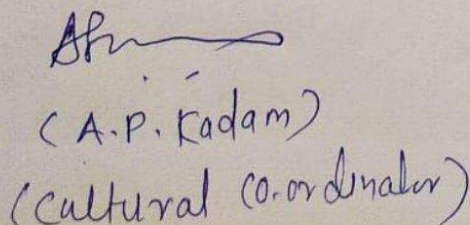 (A.P. Kadam)
(Cultural Co.ordinator)